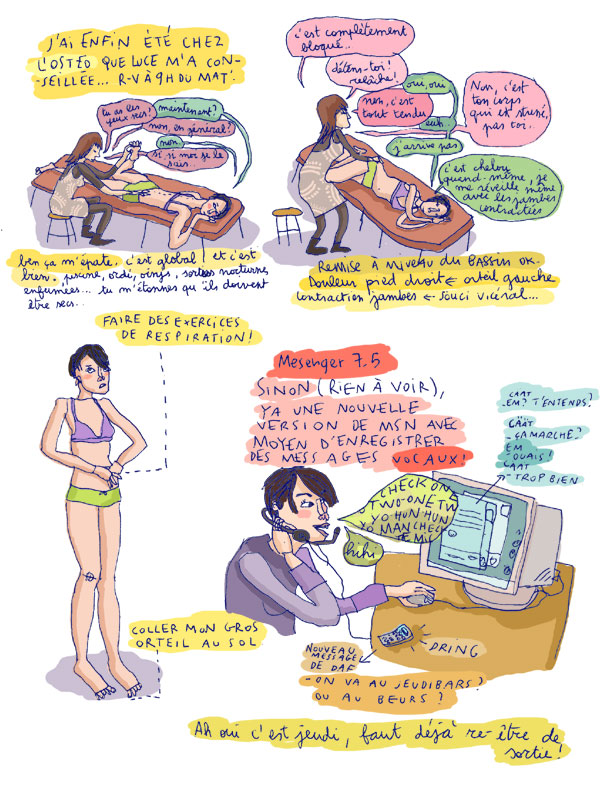 J'AI ENFIN ÉTÉ CHEZ
L'OSTÉO QUE LUCE M'A CON-
SEILLÉE... R-V À 9H DU MAT'.
tu as les
yeux secs?
maintenant?
non, en général?
non
si, si moi je le
sais...
ben ça m'épate, c'est global et c'est
bien, piscine, ordi, oinjs, sorties nocturnes
enfumées... tu m'étonnes qu'ils doivent
être secs...
c'est complètement
bloqué...
détens-toi!
relâche!
oui, oui
non, c'est
tout tendu
euh
j'arrive pas
Non, c'est
ton corps
qui est stressé,
pas toi..
c'est chelou
quand-même, je
me réveille même
avec les jambes
contractées
REMISE À NIVEAU DU BASSIN OK.
Douleur pied droit ← orteil gauche
contraction jambes ← souci vicéral...
FAIRE DES EXERCICES
DE RESPIRATION!
COLLER MON GROS
ORTEIL AU SOL
Mesenger 7.5
SINON (RIEN À VOIR),
YA UNE NOUVELLE
VERSION DE MSN AVEC
MOYEN D'ENREGISTRER
DES MESSAGES VOCAUX!
CHECK ONE
TWO-ONE TW
YO HUN HUN
YO MAN CHECK
MIC
hihi
CAAT
EM? T'ENTENDS?
CÄÄT
-ÇA MARCHE?
EM
-OUAIS!
CAAT
-TROP BIEN
NOUVEAU
MESSAGE
DE DAF
DRING
-ON VA AU JEUDIBARS?
OU AU BEURS?
Ah oui c'est jeudi, faut déjà re-être de
sortie!